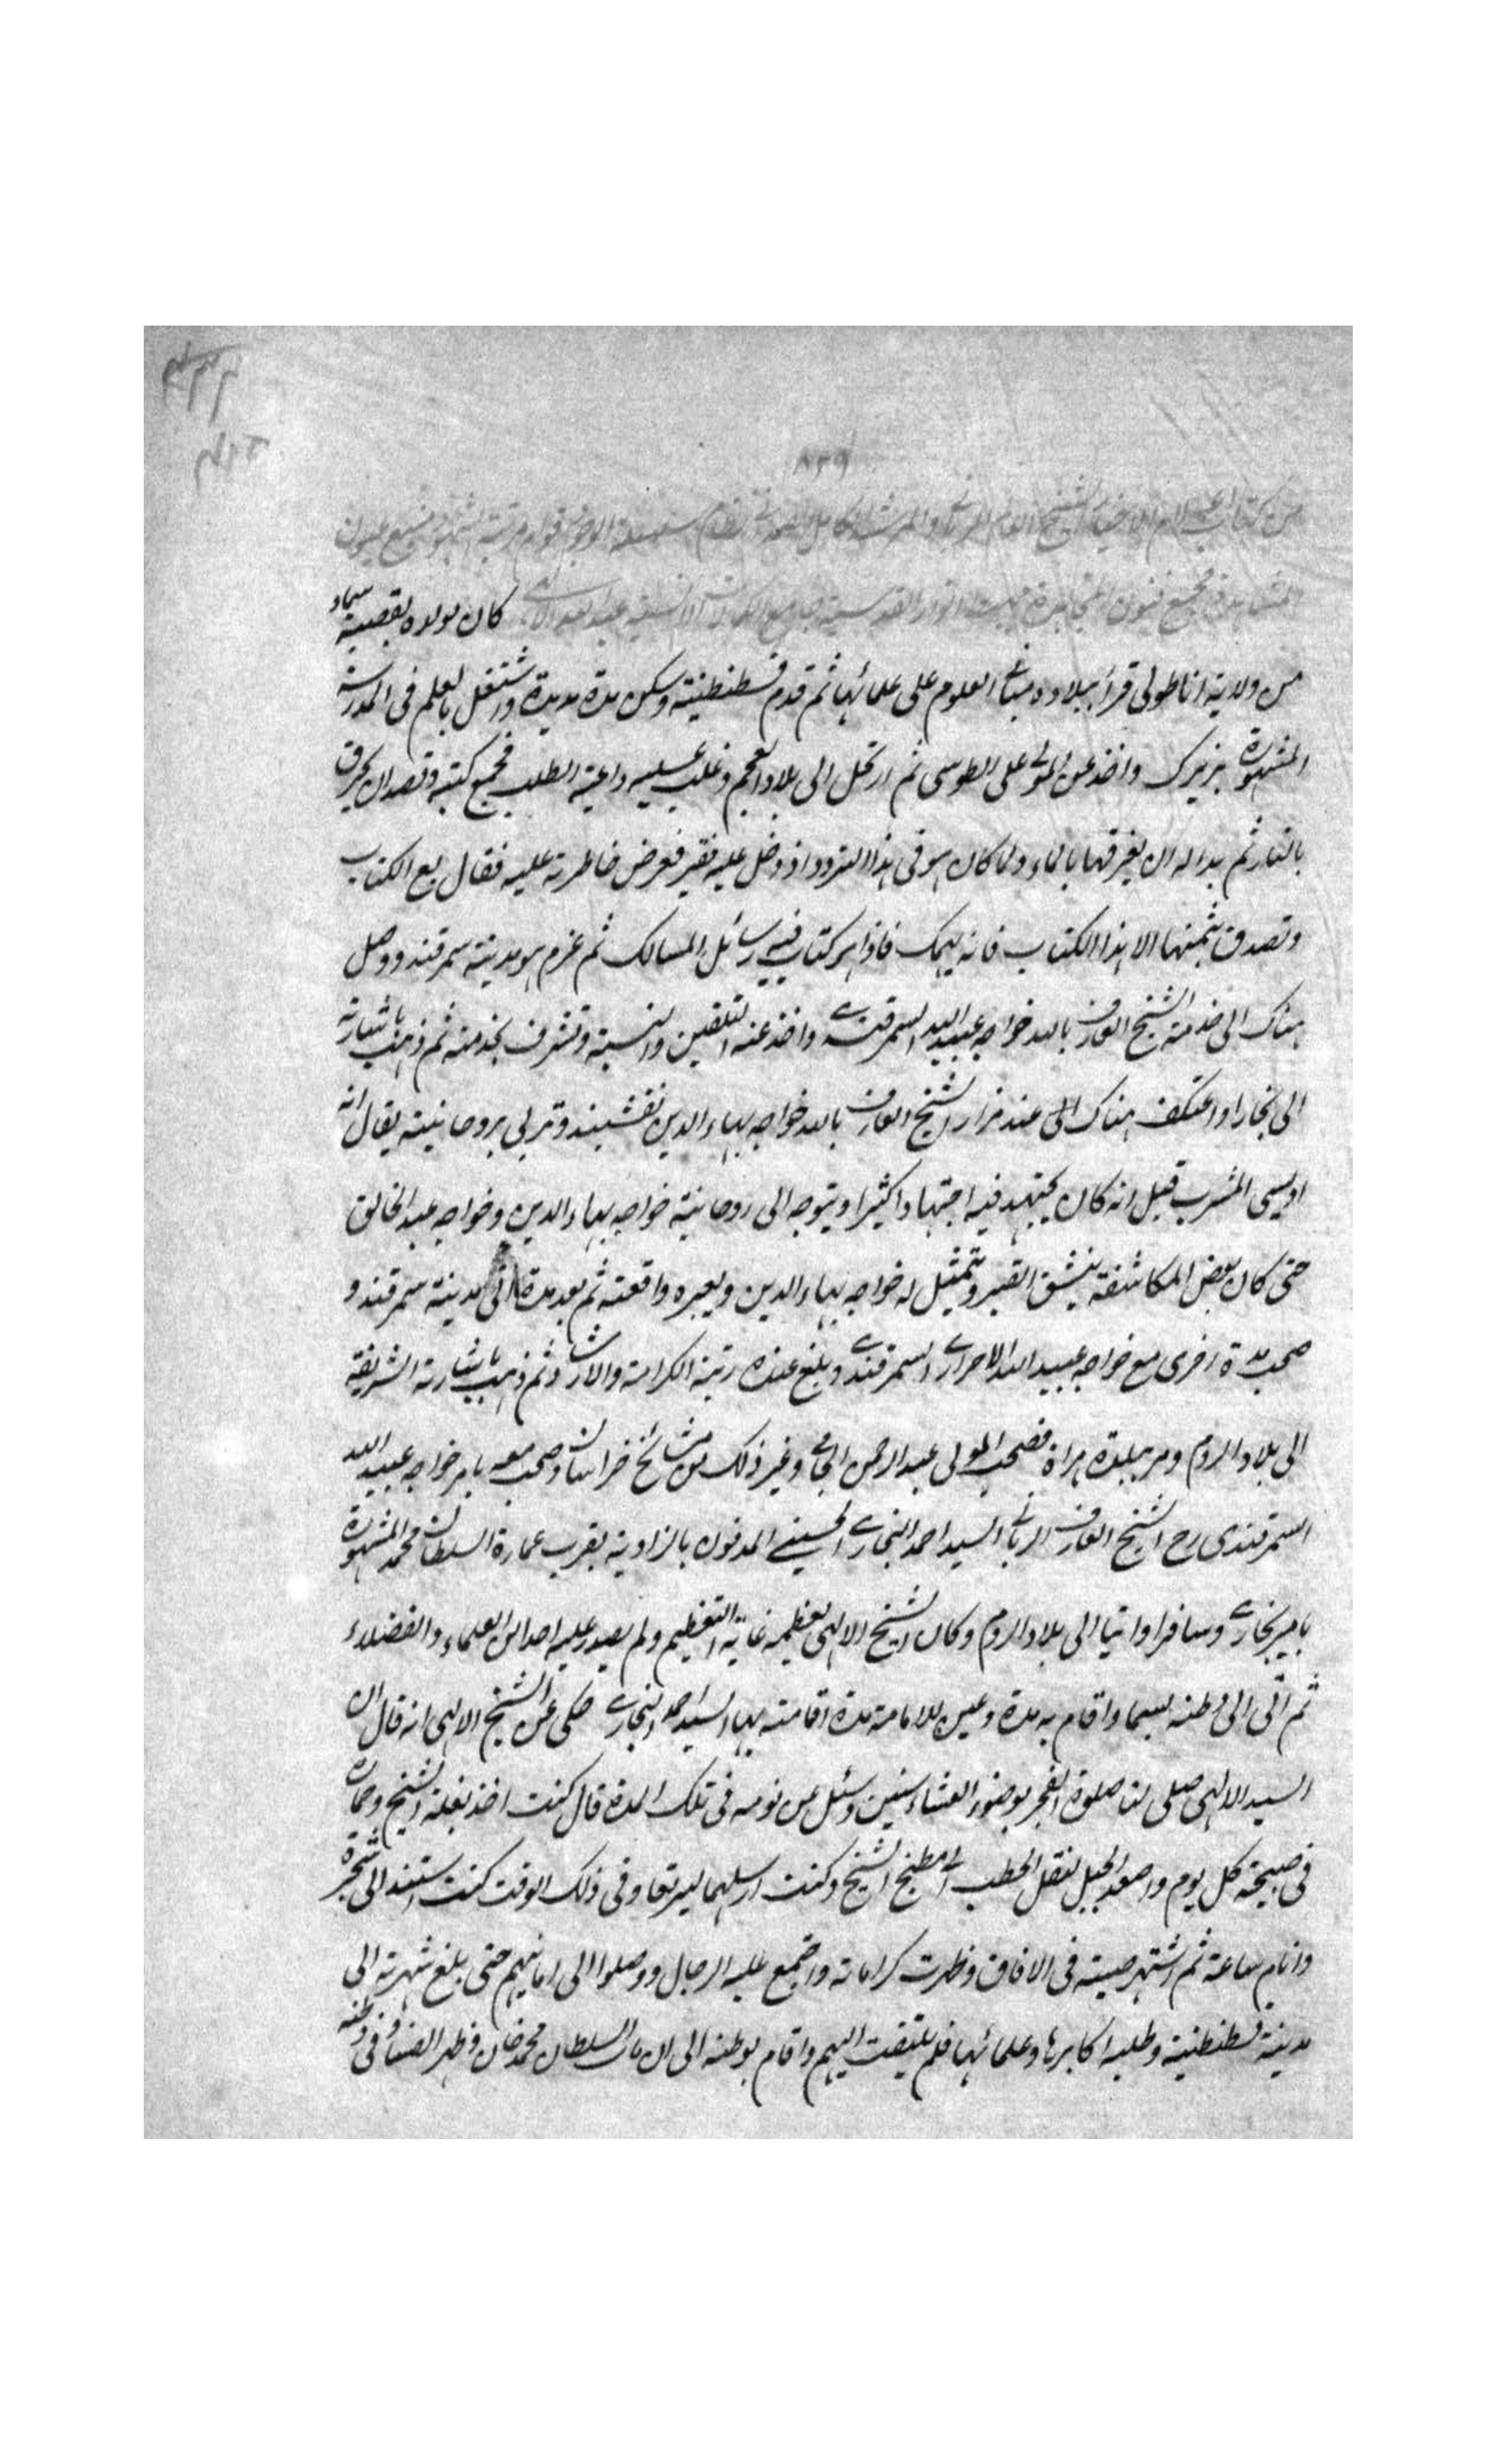 ۸۲۹
من كتاب اعلام الاخيار الشيخ العالم الربانى والمرشد الكامل الصمدانى نظام سلسلة قوام مرتبة الشهود منبع عيون
المشاهدة مجمع فنون القدسية جامع الكمالات الانسية عبد الله الالهى كان مولده بقصبة سماو
من ولاية اناطولى قرأ ببلاده مبانى العلوم على علمائها ثم قدم قسطنطنية وسكن مدة مديدة واشتغل بالعلم فى المدرسة
المشهورة بزيرك واخذ عن المولى على الطوسى ثم ارتحل الى بلاد العجم وغلب عليه داعية الطلب فجمع كتبه وقصد ان يحرق
بالنار ثم بدا له ان يغرقها بالماء ولما كان هو فى هذا التردد اذ دخل عليه فقير فعرض خاطرته عليه فقال بع الكتاب
وتصدق بثمنها الا هذا الكتاب فانه يهمك فاذا هو كتاب فيه رسائل المسالك ثم عزم هو مدينة سمرقند ووصل
هناك الى خدمة الشيخ العارف بالله خواجه عبيد الله السمرقندى واخذ عنه التلقين والنسبة وتشرف بخدمته ثم ذهب باشارته
الى بخارا واعتكف هناك الى عند مزار الشيخ العارف بالله خواجه بهاء الدين نقشبند وتربى بروحانيته يقال انه
اويسى المشرب قيل انه كان يجتهد فيه اجتهادا كثيرا ويتوجه الى روحانية خواجه بهاء الدين وخواجه عبد الخالق
حتى كان بعض المكاشفة ينشق القبر ويتمثل له خواجه بهاء الدين ويعبره واقعته ثم بعد مدة اتى مدينة سمرقند و
صحب مدة اخرى مع خواجه عبيد الله الاحرارى السمرقندى وبلغ عنده رتبة الكرامة والارشاد ثم ذهب باشارته الشريفة
الى بلاد الروم ومر ببلدة هراة فصحب المولى عبد الرحمن الجامى وغير ذلك من مشائخ خراسان وصحب معه بامر خواجه عبيد الله
السمرقندى رح الشيخ العارف الربانى السيد احمد البخارى الحسينى المدفون بالزاوية بقرب عمارة السلطان محمد المشهورة
بامير بخارى وسافرا واتيا الى بلاد الروم وكان الشيخ الالهى يعظمه غاية التعظيم ولم يصدر عليه احدا من العلماء والفضلاء
ثم اتى الى وطنه بسيما واقام به مدة وعين للامامة مدة اقامته بها السيد احمد البخارى حكى عن الشيخ الالهى انه قال ان
السيد الالهى صلى لنا صلوة الفجر بوضوء العشاء سنين وسئل عن نومه فى تلك المدة قال كنت اخذ بغلة الشيخ وحماره
فى صبيحة كل يوم واصعد الجبل لنقل الحطب الى مطبخ الشيخ وكنت ارسلهما ليرتعا وفى ذلك الوقت كنت استند الى شجرة
وانام ساعة ثم اشتهر صيته فى الافاق وظهرت كراماته واجتمع عليه الرجال ووصلوا الى امانيهم حتى بلغ شهرته الى
مدينة قسطنطنية وطلبه اكابرها وعلمائها فلم يلتفت اليهم واقام بوطنه الى ان مات السلطان محمد خان وظهر الفتنا فى وطنه